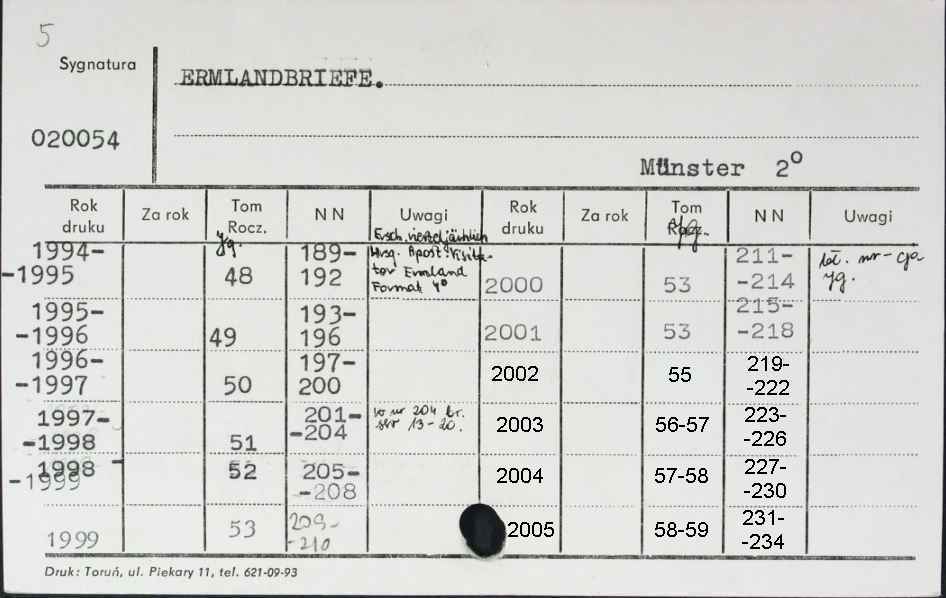 5
Sygnatura
ERMLANDBRIEFE.
020054
Münster 2º
Rok druku Za rok Tom Rocz. NN Uwagi Rok druku Za rok Tom Rocz. NN Uwagi
Jg. Jg.
1994-
-1995 48 189-
192 Ersch. vierteljährlich
Hrsg. Apost. Visita-
tor Ermland
Format 4º 2000 53 211-
-214
Jg.
1995-
-1996 49 193-
196 2001 53 215-
-218
1996-
-1997 50 197-
200 2002 55 219-
-222
1997-
-1998 51 201-
-204 w nr 204 br.
str 13-20. 2003 56-57 223-
-226
1998 -
-1999 52 205-
-208 2004 57-58 227-
-230
1999 53 209-
-210 2005 58-59 231-
-234
Druk: Toruń, ul. Piekary 11, tel. 621-09-93